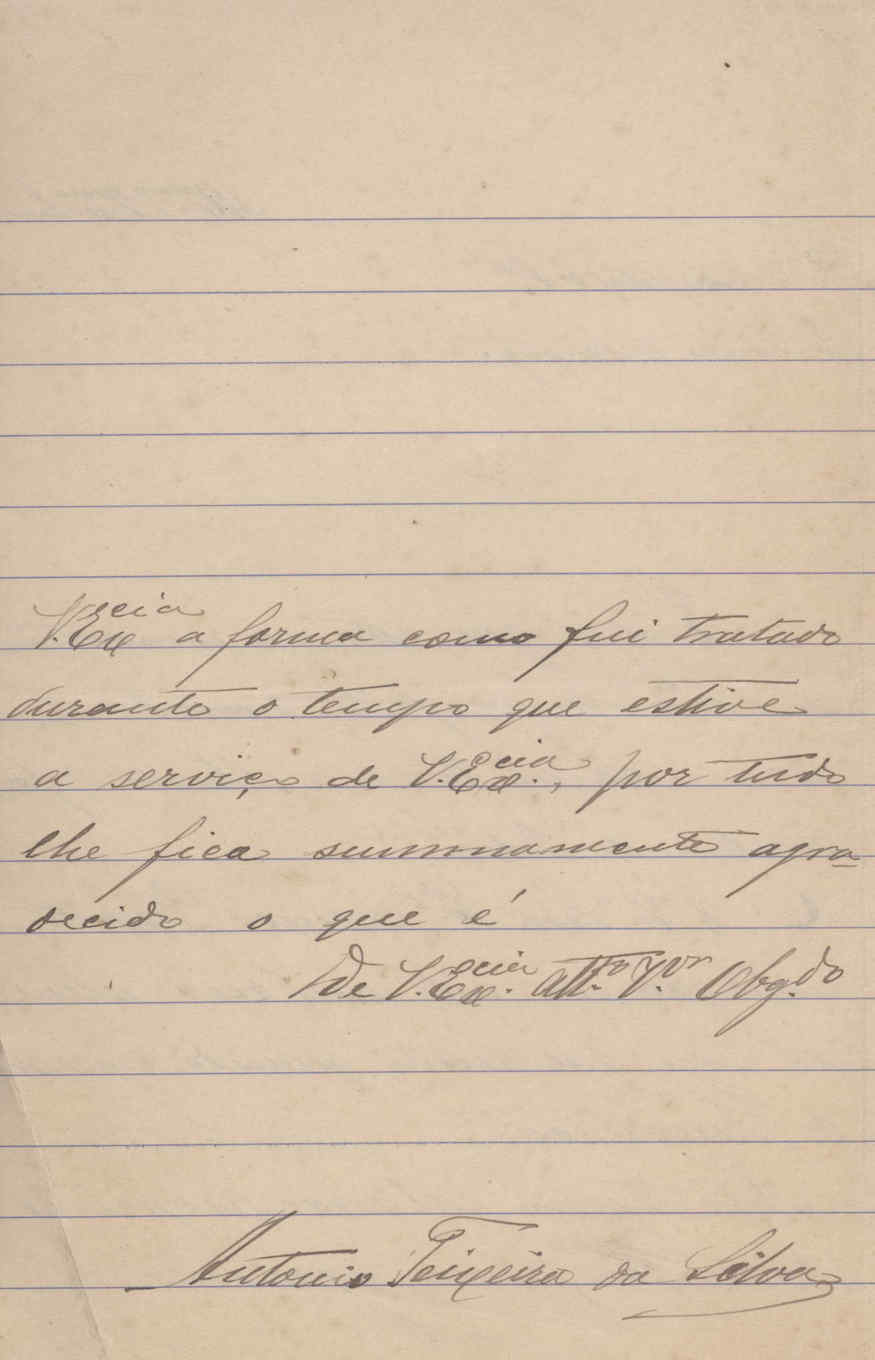 V. Ex.cia a forma como fui tratado
durante o tempo que estive
a serviço de V. Ex.cia, por tudo
lhe fica summamente agra-
decido o que é
De V. Ex.cia att.to V.or Obg.do
Antonio Teixeira da Silva